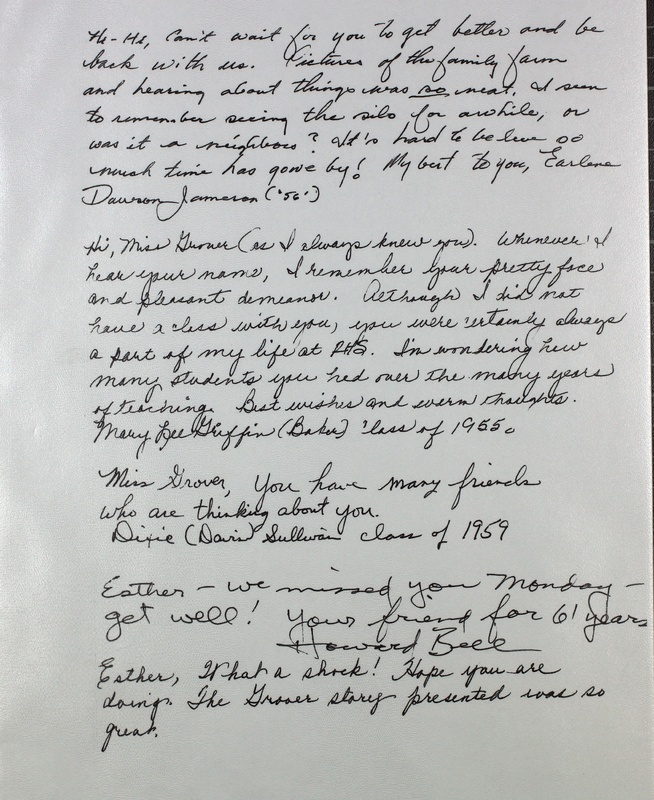 Hi-Hi, Can't wait for you to get better and be
back with us. Pictures of the family farm
and hearing about things was so neat. I seem
to remember seeing the silo for awhile, or
was it a neighbors? It's hard to believe so
much time has gone by! My best to you, Earlene
Dawson Jameson ('56')
Hi, Miss Grover (as I always knew you). Whenever I
hear your name, I remember your pretty face
and pleasant demeanor. Although I did not
have a class with you, you were certainly always
a part of my life at PHS. I'm wondering how
many students you had over the many years
of teaching. Best wishes and warm thoughts.
Mary Lee Griffin (Baker) Class of 1955.
Miss Grover, You have many friends
who are thinking about you.
Dixie (Davis) Sullivan class of 1959
Esther - we missed you Monday -
get well! Your friend for 61 years
Howard Bell
Esther, What a shock! Hope you are
doing. The Grover story presented was so
great.